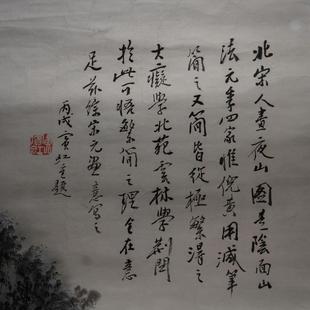 北宋人畫夜山圖是陰面山
法元季四家惟倪黃用減筆
簡之又簡皆從極繁得之
大癡學北苑雲林學荊關
於此可悟繁簡之理全在意
足茲綜宋元畫意寫之
丙戌賓虹重題